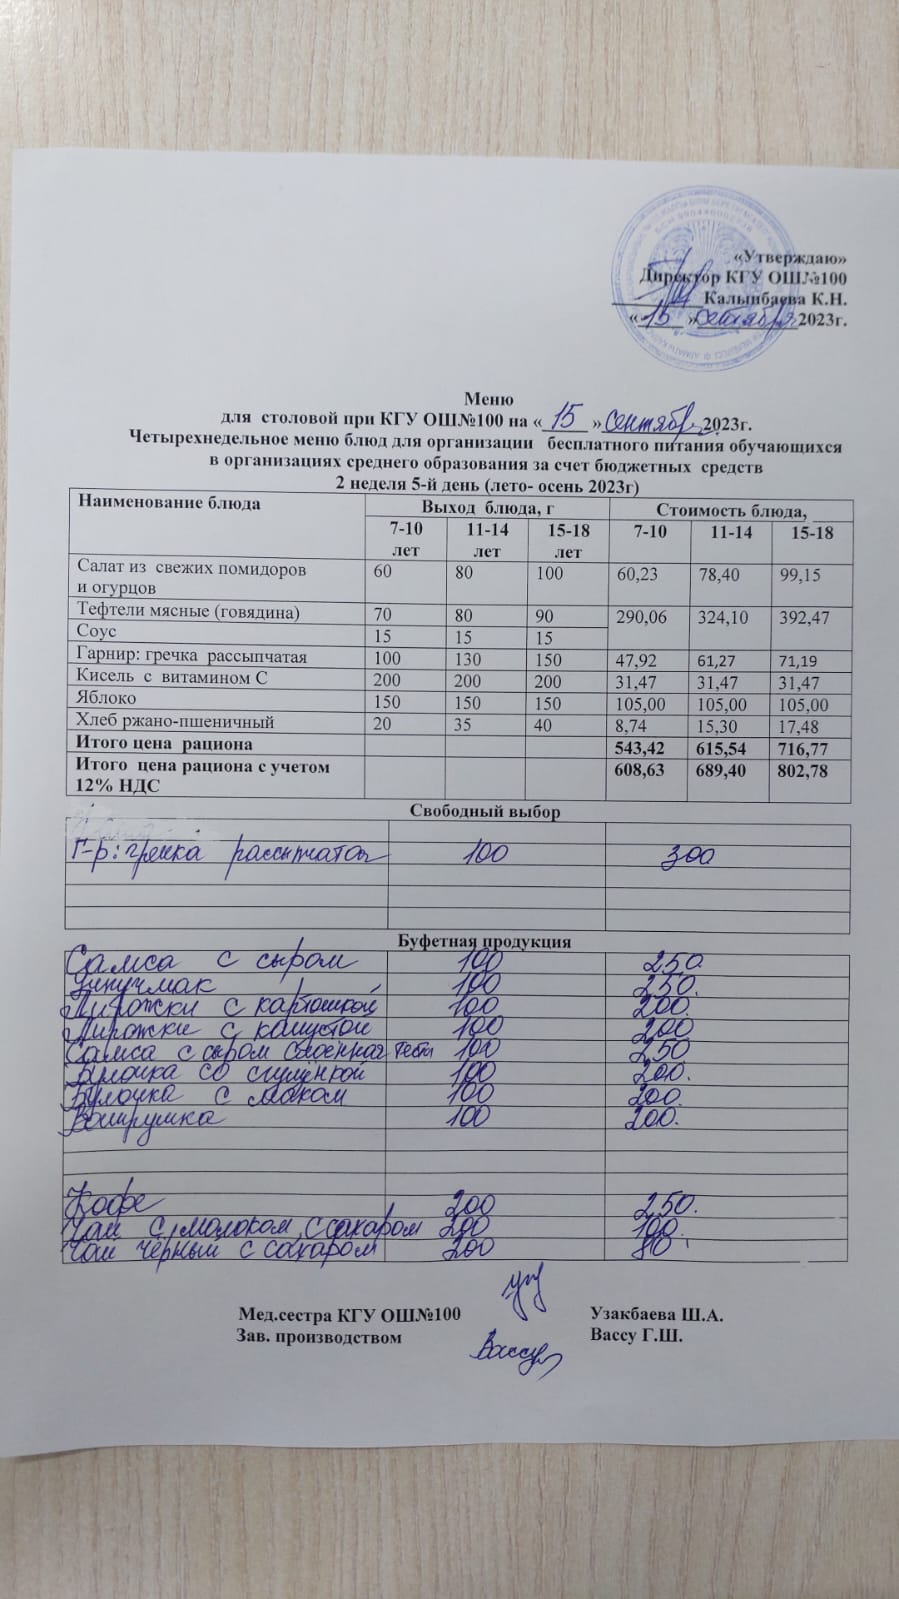 «Утверждаю»
Директор КГУ ОШ№100
Калынбаева К.Н.
« 15 » сентября 2023г.
Меню
для столовой при КГУ ОШ№100 на « 15 » сентябрь 2023г.
Четырехнедельное меню блюд для организации бесплатного питания обучающихся
в организациях среднего образования за счет бюджетных средств
2 неделя 5-й день (лето- осень 2023г)
Наименование блюда Выход блюда, г Стоимость блюда,
7-10 лет 11-14 лет 15-18 лет 7-10 11-14 15-18
Салат из свежих помидоров и огурцов 60 80 100 60,23 78,40 99,15
Тефтели мясные (говядина) 70 80 90 290,06 324,10 392,47
Соус 15 15 15
Гарнир: гречка рассыпчатая 100 130 150 47,92 61,27 71,19
Кисель с витамином С 200 200 200 31,47 31,47 31,47
Яблоко 150 150 150 105,00 105,00 105,00
Хлеб ржано-пшеничный 20 35 40 8,74 15,30 17,48
Итого цена рациона 543,42 615,54 716,77
Итого цена рациона с учетом 12% НДС 608,63 689,40 802,78
Свободный выбор
Г-р: гречка рассыпчатая 100 300
Буфетная продукция
Самса с сыром 100 250.
100 250.
Пирожки с картошкой 100 200.
Пирожки с капустой 100 200
Самса с сыром слоенная тесто 100 250
Булочка со сгущенкой 100 200.
Булочка с маком 100 200.
Ватрушка 100 200.
Кофе 200 250.
Чай с молоком, с сахаром 200 100.
Чай чёрный с сахаром 200 80
Мед.сестра КГУ ОШ№100 Узакбаева Ш.А.
Зав. производством Вассу Вассу Г.Ш.